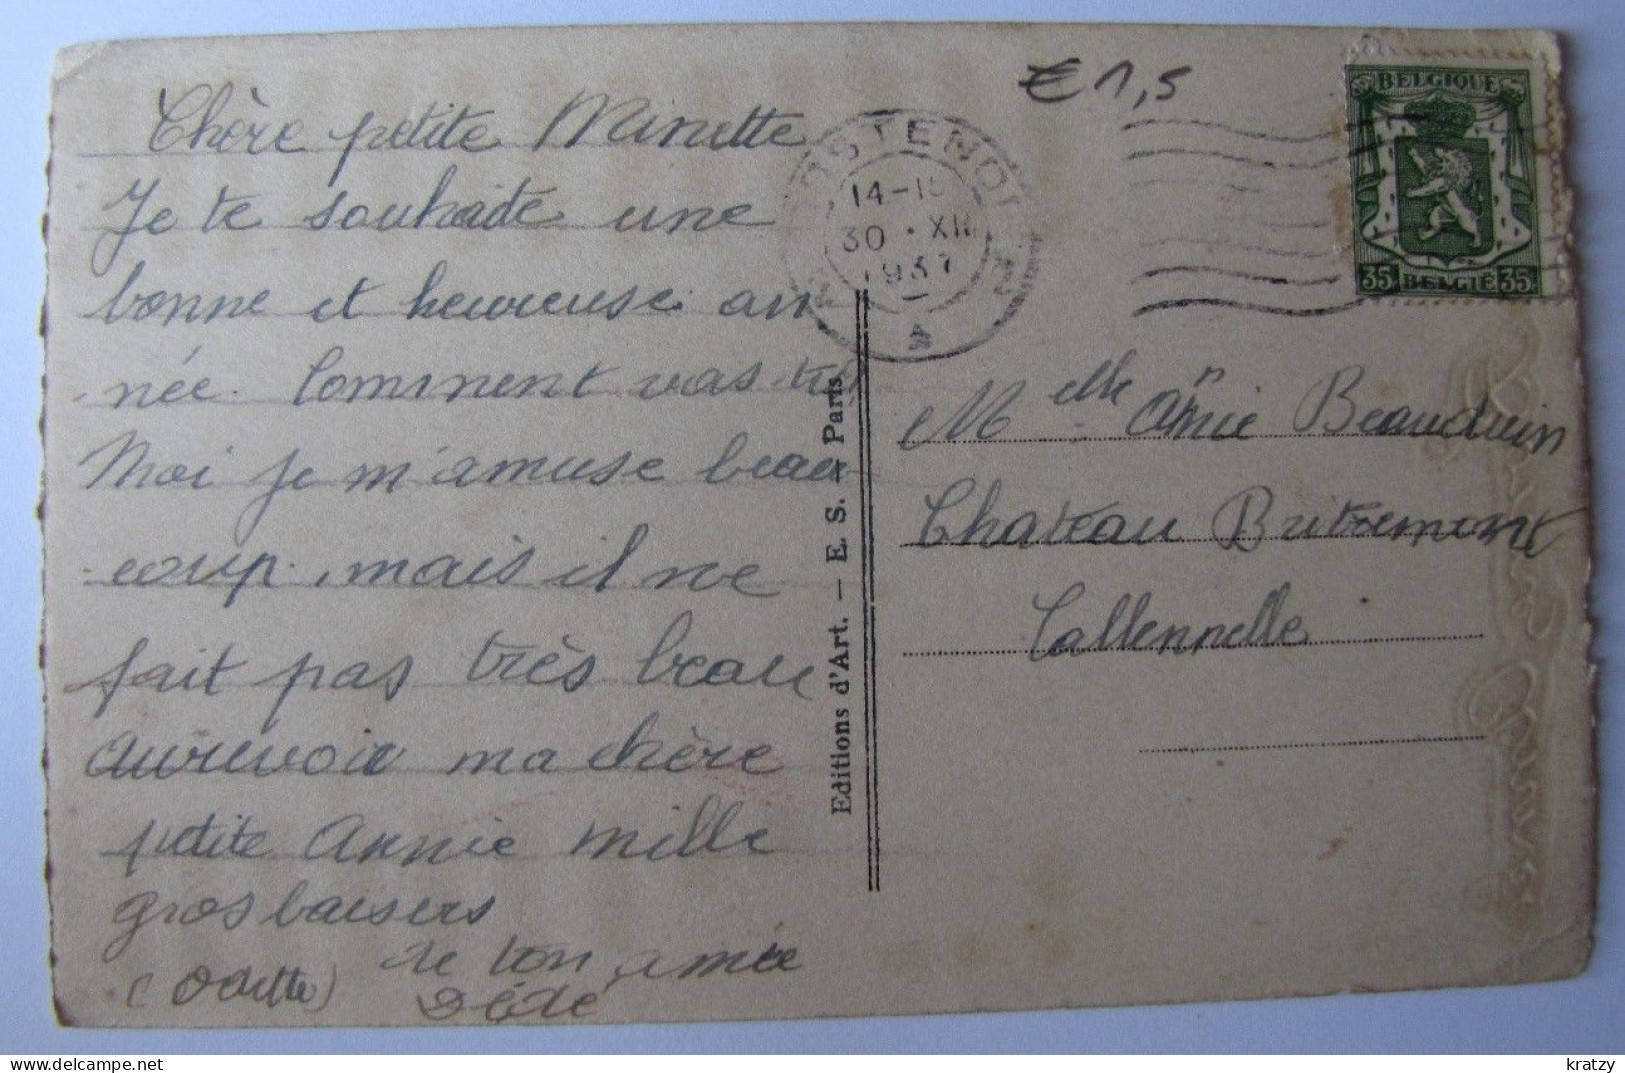 Chère petite Minette
Je te souhaite une
bonne et heureuse an
née. Comment vas tu
Moi je m'amuse beau
coup, mais il ne
fait pas très beau
aurevoir ma chère
petite Annie mille
gros baisers
de ton amie
(Odette) Dédé
Editions d'Art. — E. S. — Paris
€ 1,5
OSTENDE
14-15
30 · XII
1937
BELGIQUE
35 BELGIË 35
Melle Annie Beauduin
Chateau Britremont
Callennelle
kratzy